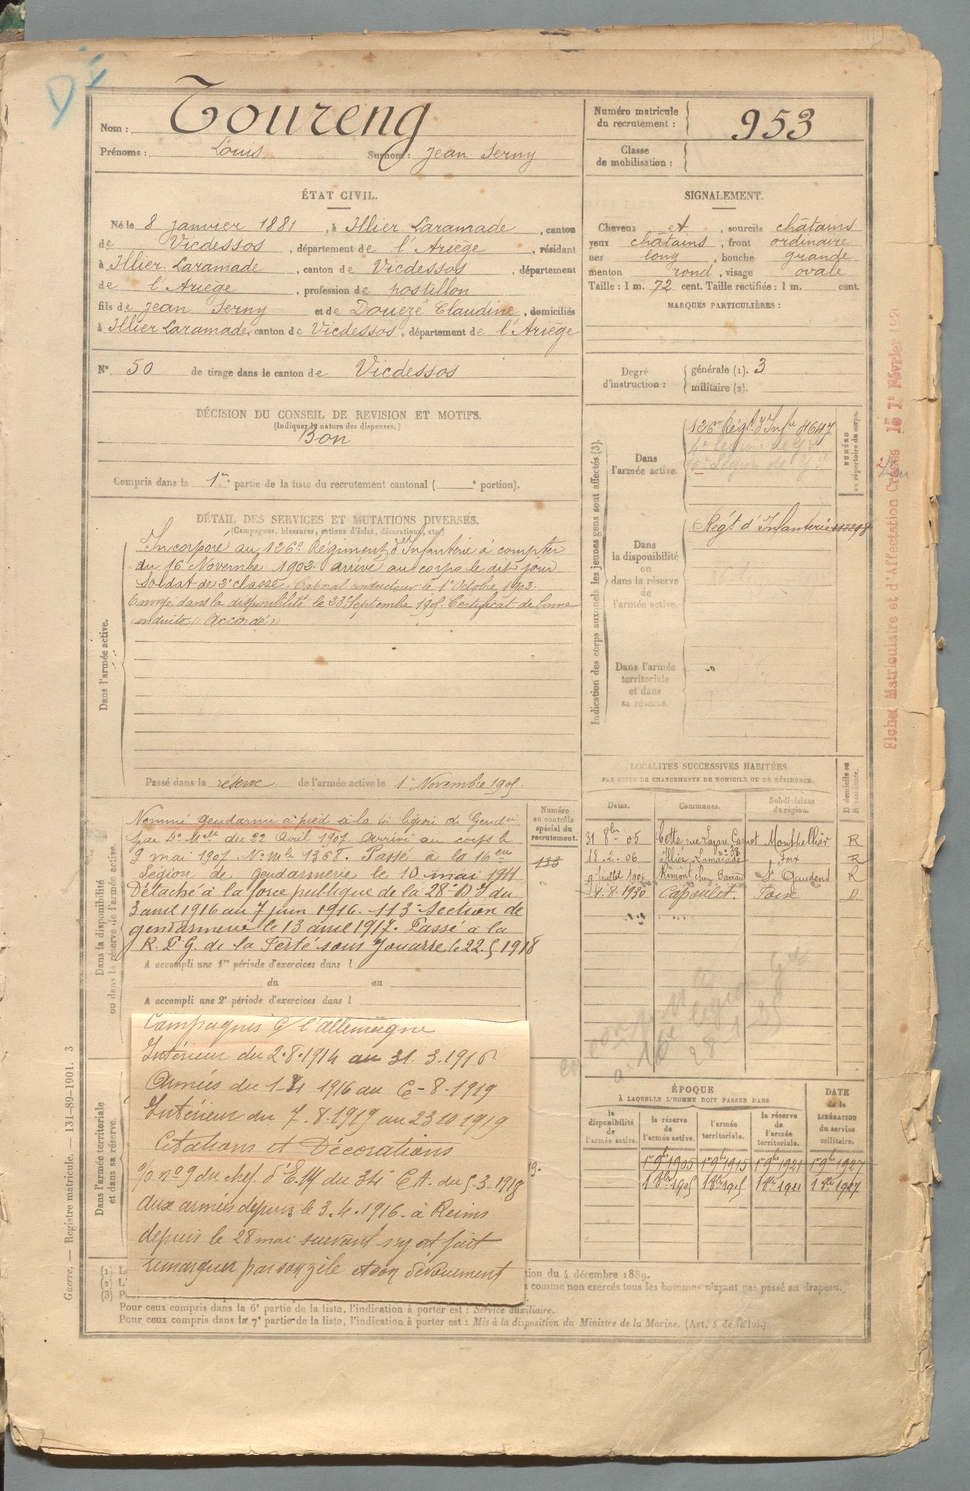 DE
Nom : Toureng
Prénoms : Louis Surnom : Jean Serny
Numéro matricule du recrutement : 953
Classe de mobilisation :
ÉTAT CIVIL.
Né le 8 janvier 1881, à Illier Laramade, canton
de Vicdessos, département de l'Ariège, résidant
à Illier Laramade, canton de Vicdessos, département
de l'Ariège, profession de postillon
fils de Jean Serny et de Doueré Claudine, domiciliés
à Illier Laramade, canton de Vicdessos, département de l'Ariège
N° 50 de tirage dans le canton de Vicdessos
SIGNALEMENT.
Cheveux et, sourcils châtains
yeux châtains, front ordinaire
nez long, bouche grande
menton rond, visage ovale
Taille : 1 m. 72 cent. Taille rectifiée : 1 m. cent.
MARQUES PARTICULIÈRES :
Degré d'instruction : générale (1). 3
militaire (2).
DÉCISION DU CONSEIL DE REVISION ET MOTIFS.
(Indiquer la nature des dispenses.)
Bon
Compris dans la 1re partie de la liste du recrutement cantonal ( e portion).
DÉTAIL DES SERVICES ET MUTATIONS DIVERSES.
(Campagnes, blessures, actions d'éclat, décorations, etc.)
Dans l'armée active.
Incorporé au 126e Régiment d'Infanterie à compter
du 16 Novembre 1902 arrivé au corps le dit jour
Soldat de 2e classe. Caporal le 1er Octobre 1903.
Envoyé dans la disponibilité le 23 Septembre 1905 Certificat de bonne
conduite : Accordé.
Passé dans la réserve de l'armée active le 1er Novembre 1905.
Indication des corps auxquels les jeunes gens sont affectés (3).
NUMÉRO au répertoire du corps.
Dans l'armée active.
126e Régt d'Infie 4647
Dans la disponibilité ou dans la réserve de l'armée active.
Régt d'Infanterie
Dans l'armée territoriale et dans sa réserve.
Fiches Matriculaire et d'Affectation Créées le 1er Février
Dans la disponibilité ou dans la réserve de l'armée active.
Nommé gendarme à pied à la légion de Gendie
par Don Mlle du 22 Avril 1907. Arrivé au corps le
9 mai 1907. N° mle 1368. Passé à la 16eme
Légion de gendarmerie le 10 mai 1911
Détaché à la force publique de la 28e D.I du
3 avril 1916 au 7 juin 1916. 113e Section de
gendarmerie le 13 avril 1917. Passé à la
de la Ferté sous Jouarre le 22.5 1918
A accompli une 1re période d'exercices dans l
du au
A accompli une 2e période d'exercices dans l
Numéro au contrôle spécial du recrutement.
133
LOCALITÉS SUCCESSIVES HABITÉES
PAR SUITE DE CHANGEMENTS DE DOMICILE OU DE RÉSIDENCE.
Dates. Communes. Subdivisions de région. D domicile ou R résidence.
31 8bre 05 Cette, rue Lazare Carnot n° 38 Montpellier R
18-2-06 Illier Laramade Foix R
9 juillet 1906 St Gaudens R
4-8-1930 Capoulet. Foix D
28-1-25
Dans l'armée territoriale et dans sa réserve.
Campagnes C/ l'allemagne
Intérieur du 2.8.1914 au 31.3.1916
Armées du 1-4 1916 au 6-8-1919
Intérieur du 7.8.1919 au 23 10 1919
Citations et Décorations
n° 9 du chef d'E.M du 34 C.A. du 5.3.1918
aux armées depuis le 3.4.1916 à Reims
depuis le 28 mai suivant s'y est fait
remarquer par son zèle et son dévouement
ÉPOQUE
À LAQUELLE L'HOMME DOIT PASSER DANS
la disponibilité de l'armée active. la réserve de l'armée active. l'armée territoriale. la réserve de l'armée territoriale. DATE de la LIBÉRATION du service militaire.
1er 9bre 1905 1er 9bre 1915 1er 9bre 1921 1er 9bre 1927
1 8bre 1905 1 8bre 1915 1 8bre 1921 1 8bre 1927
tion du 4 décembre 1889.
comme non exercés tous les hommes n'ayant pas passé au drapeau.
Pour ceux compris dans la 6e partie de la liste, l'indication à porter est : Service auxiliaire.
Pour ceux compris dans la 7e partie de la liste, l'indication à porter est : Mis à la disposition du Ministre de la Marine. (Art. 4 de la loi.)
Guerre. — Registre matricule. — 131-89-1901. 3